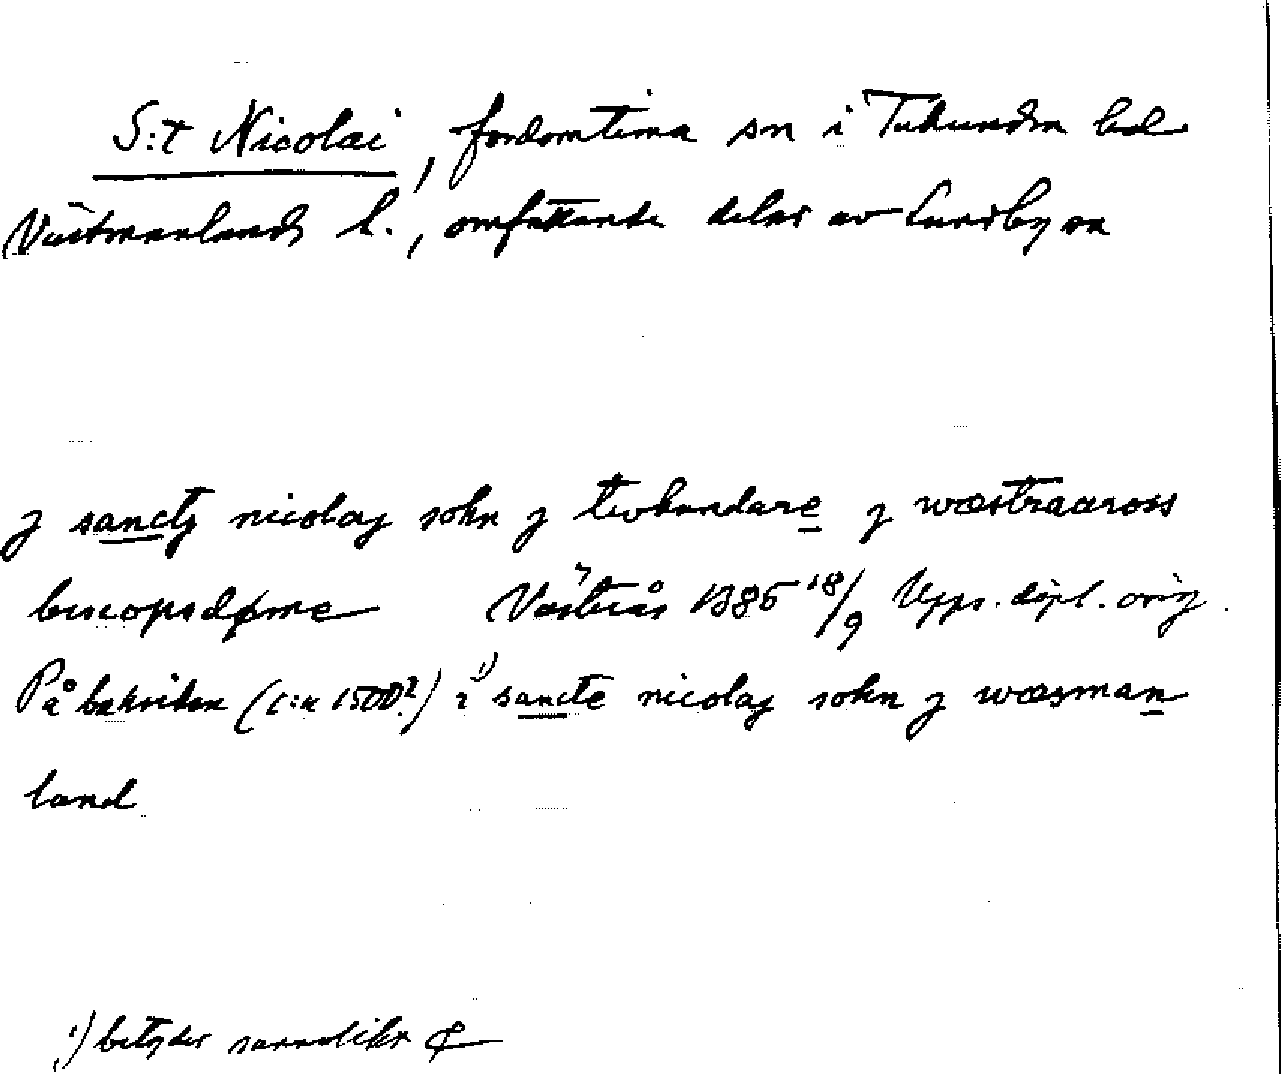 S:t Nicolai, fordomtima sn i Tuhundra hd
Västmanlands l., omfattande delar av Lundby sn
j sanctj nicolaj sokn j twhundare j wæstraaross
biscopsdøme Västerås 1386 18/9 Upps. dipl. orig.
På baksidan (c:a 1500?) i 1) sancte nicolaj sokn j wæsman
land
1) betyder sannolikt &